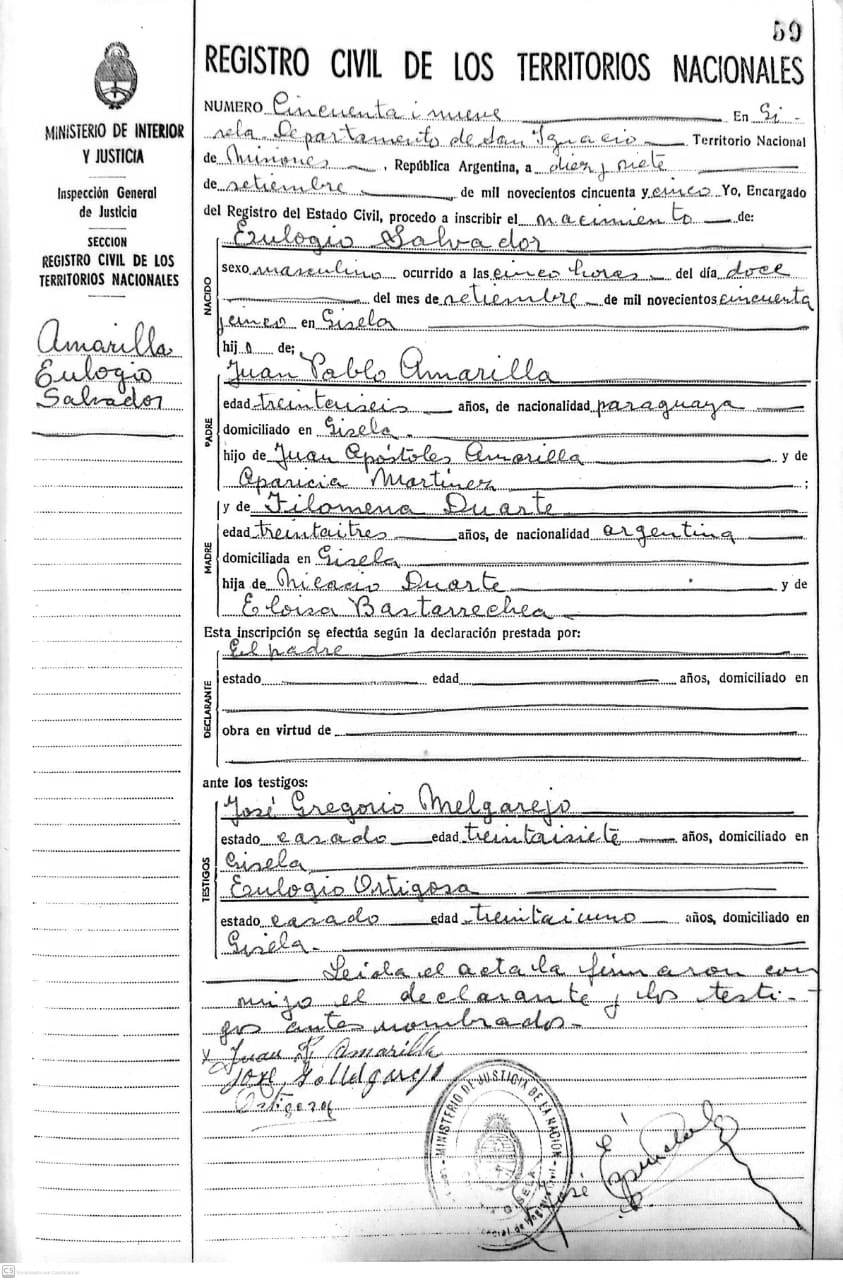 59
REGISTRO CIVIL DE LOS TERRITORIOS NACIONALES
MINISTERIO DE INTERIOR
Y JUSTICIA
Inspección General
de Justicia
SECCION
REGISTRO CIVIL DE LOS
TERRITORIOS NACIONALES
Amarilla
Eulogio
Salvador
NUMERO Cincuenta i nueve En Gi-
sela Departamento de San Ignacio Territorio Nacional
de Misiones, República Argentina, a diez y siete
de setiembre de mil novecientos cincuenta y cinco Yo, Encargado
del Registro del Estado Civil, procedo a inscribir el nacimiento de:
NACIDO
Eulogio Salvador
sexo masculino ocurrido a las cinco horas del día doce
del mes de setiembre de mil novecientos cincuenta
icinco en Gisela
hijo de;
PADRE
Juan Pablo Amarilla
edad treintaiseis años, de nacionalidad paraguaya
domiciliado en Gisela.
hijo de Juan Apóstoles Amarilla y de
Aparicia Martinez ;
MADRE
y de Filomena Duarte
edad treintaitres años, de nacionalidad argentina
domiciliada en Gisela
hija de Nicacio Duarte y de
Eloisa Bastarrechea
Esta inscripción se efectúa según la declaración prestada por:
DECLARANTE
El padre
estado edad años, domiciliado en
obra en virtud de
ante los testigos:
TESTIGOS
José Gregorio Melgarejo
estado casado edad treintaisiete años, domiciliado en
Gisela
Eulogio Ortigosa
estado casado edad treintaiuno años, domiciliado en
Gisela.
Leida el acta la firmaron con
migo el declarante y los testi-
gos antes nombrados.-
x Juan P. Amarilla
José G. Melgarejo
Ortigosa
MINISTERIO DE JUSTICIA DE LA NACION
GISELA
José